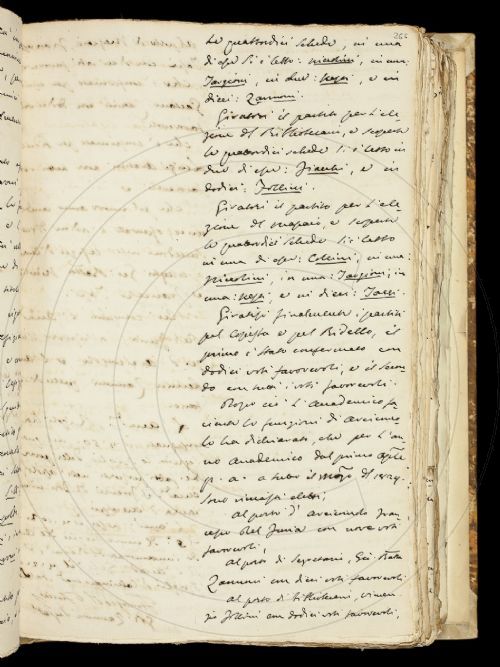 266
le quattordici schede, in una
di esse si è letto: Niccolini, in una:
Targioni, in due: Nesti, e in
dieci: Zannoni.
Giratosi il partito per l'ele-
zione del Bibliotecario, e scoperte
le quattordici schede si è letto in
due di esse: Fiacchi, e in
dodici: Follini.
Giratosi il partito per l'ele-
zione del Massaio, e scoperte
le quattordici schede si è letto
in una di esse: Collini, in una:
Niccolini, in una: Targioni, in
una: Nesti, e in dieci:
Giratisi finalmente i partiti
pel Copista e pel Bidello, il
primo è stato confermato con
dodici voti favorevoli, e il secon-
do con tutti i voti favorevoli.
Dopo ciò l'Accademico fa-
ciente le funzioni di Arcicon-
solo ha dichiarato, che per l'an-
no Accademico dal primo Aprile
p. a. a tutto il Marzo 1824.
sono rimasti eletti,
al posto d'Arciconsolo Fran-
cesco Del Furia con nove voti
favorevoli,
al posto di Segretario, Gio. Batta
Zannoni con dieci voti favorevoli
al posto di Bibliotecario, Vincen-
zio Follini con dodici voti favorevoli,